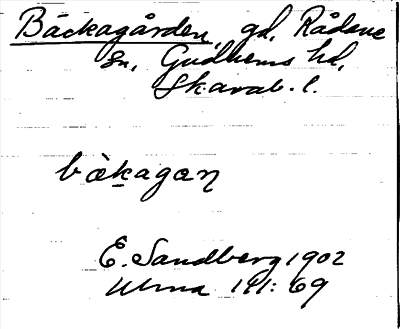 Bäckagården, gd, Rådene
sn, Gudhems hd,
Skarab. l.
bäkagan
E. Sandberg 1902
Ulma 141: 69